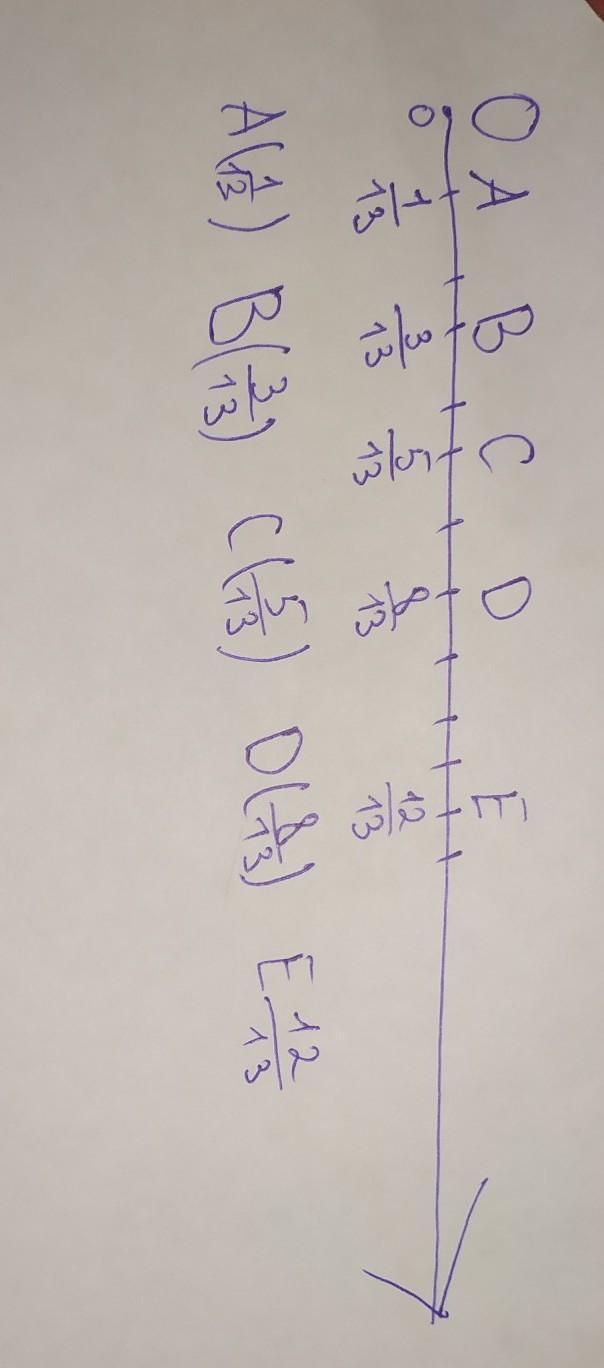 O A B C D E
0 1/13 3/13 5/13 8/13 12/13
A(1/12) B(3/13) C(5/13) D(8/13) E 12/13